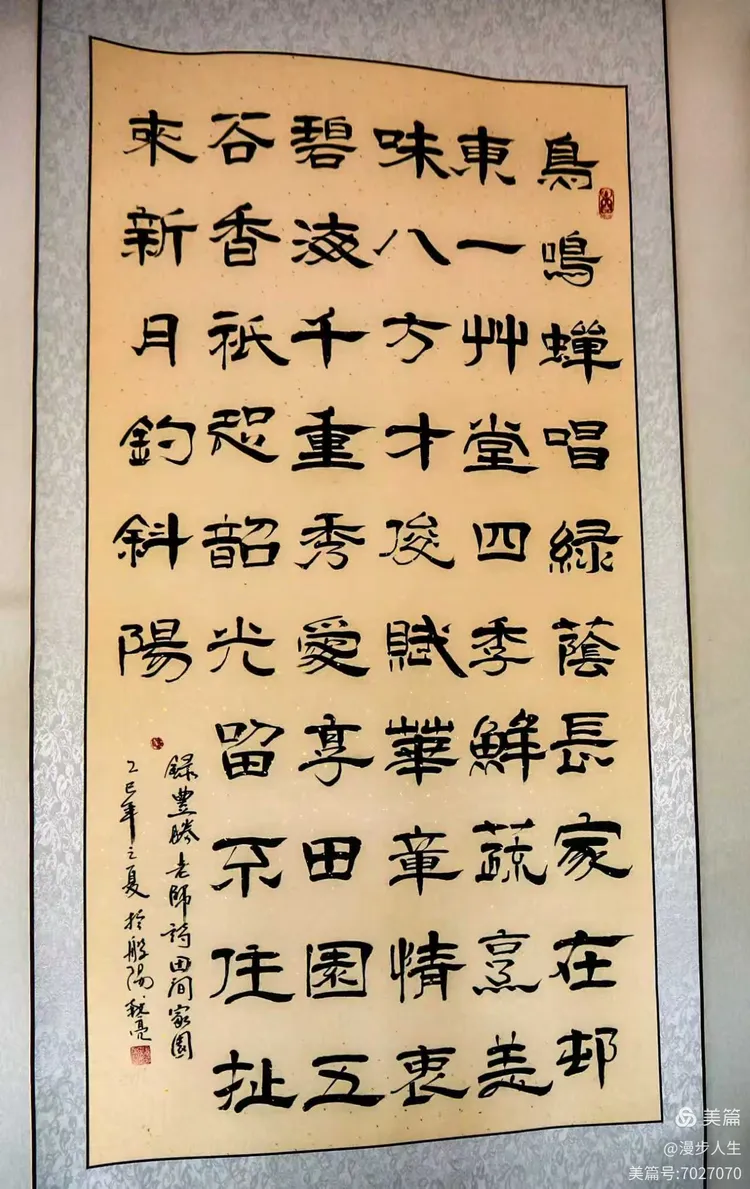 鳥鳴蟬唱緑蔭長家在邨
東一艸堂四季鮮蔬烹美
味八方才俊賦華章情衷
碧海千重秀愛享田園五
谷香祇恐韶光留不住扯
來新月釣斜陽
録豐勝老師詩田間家園
乙巳年之夏於般陽
美篇
@漫步人生
美篇号:7027070